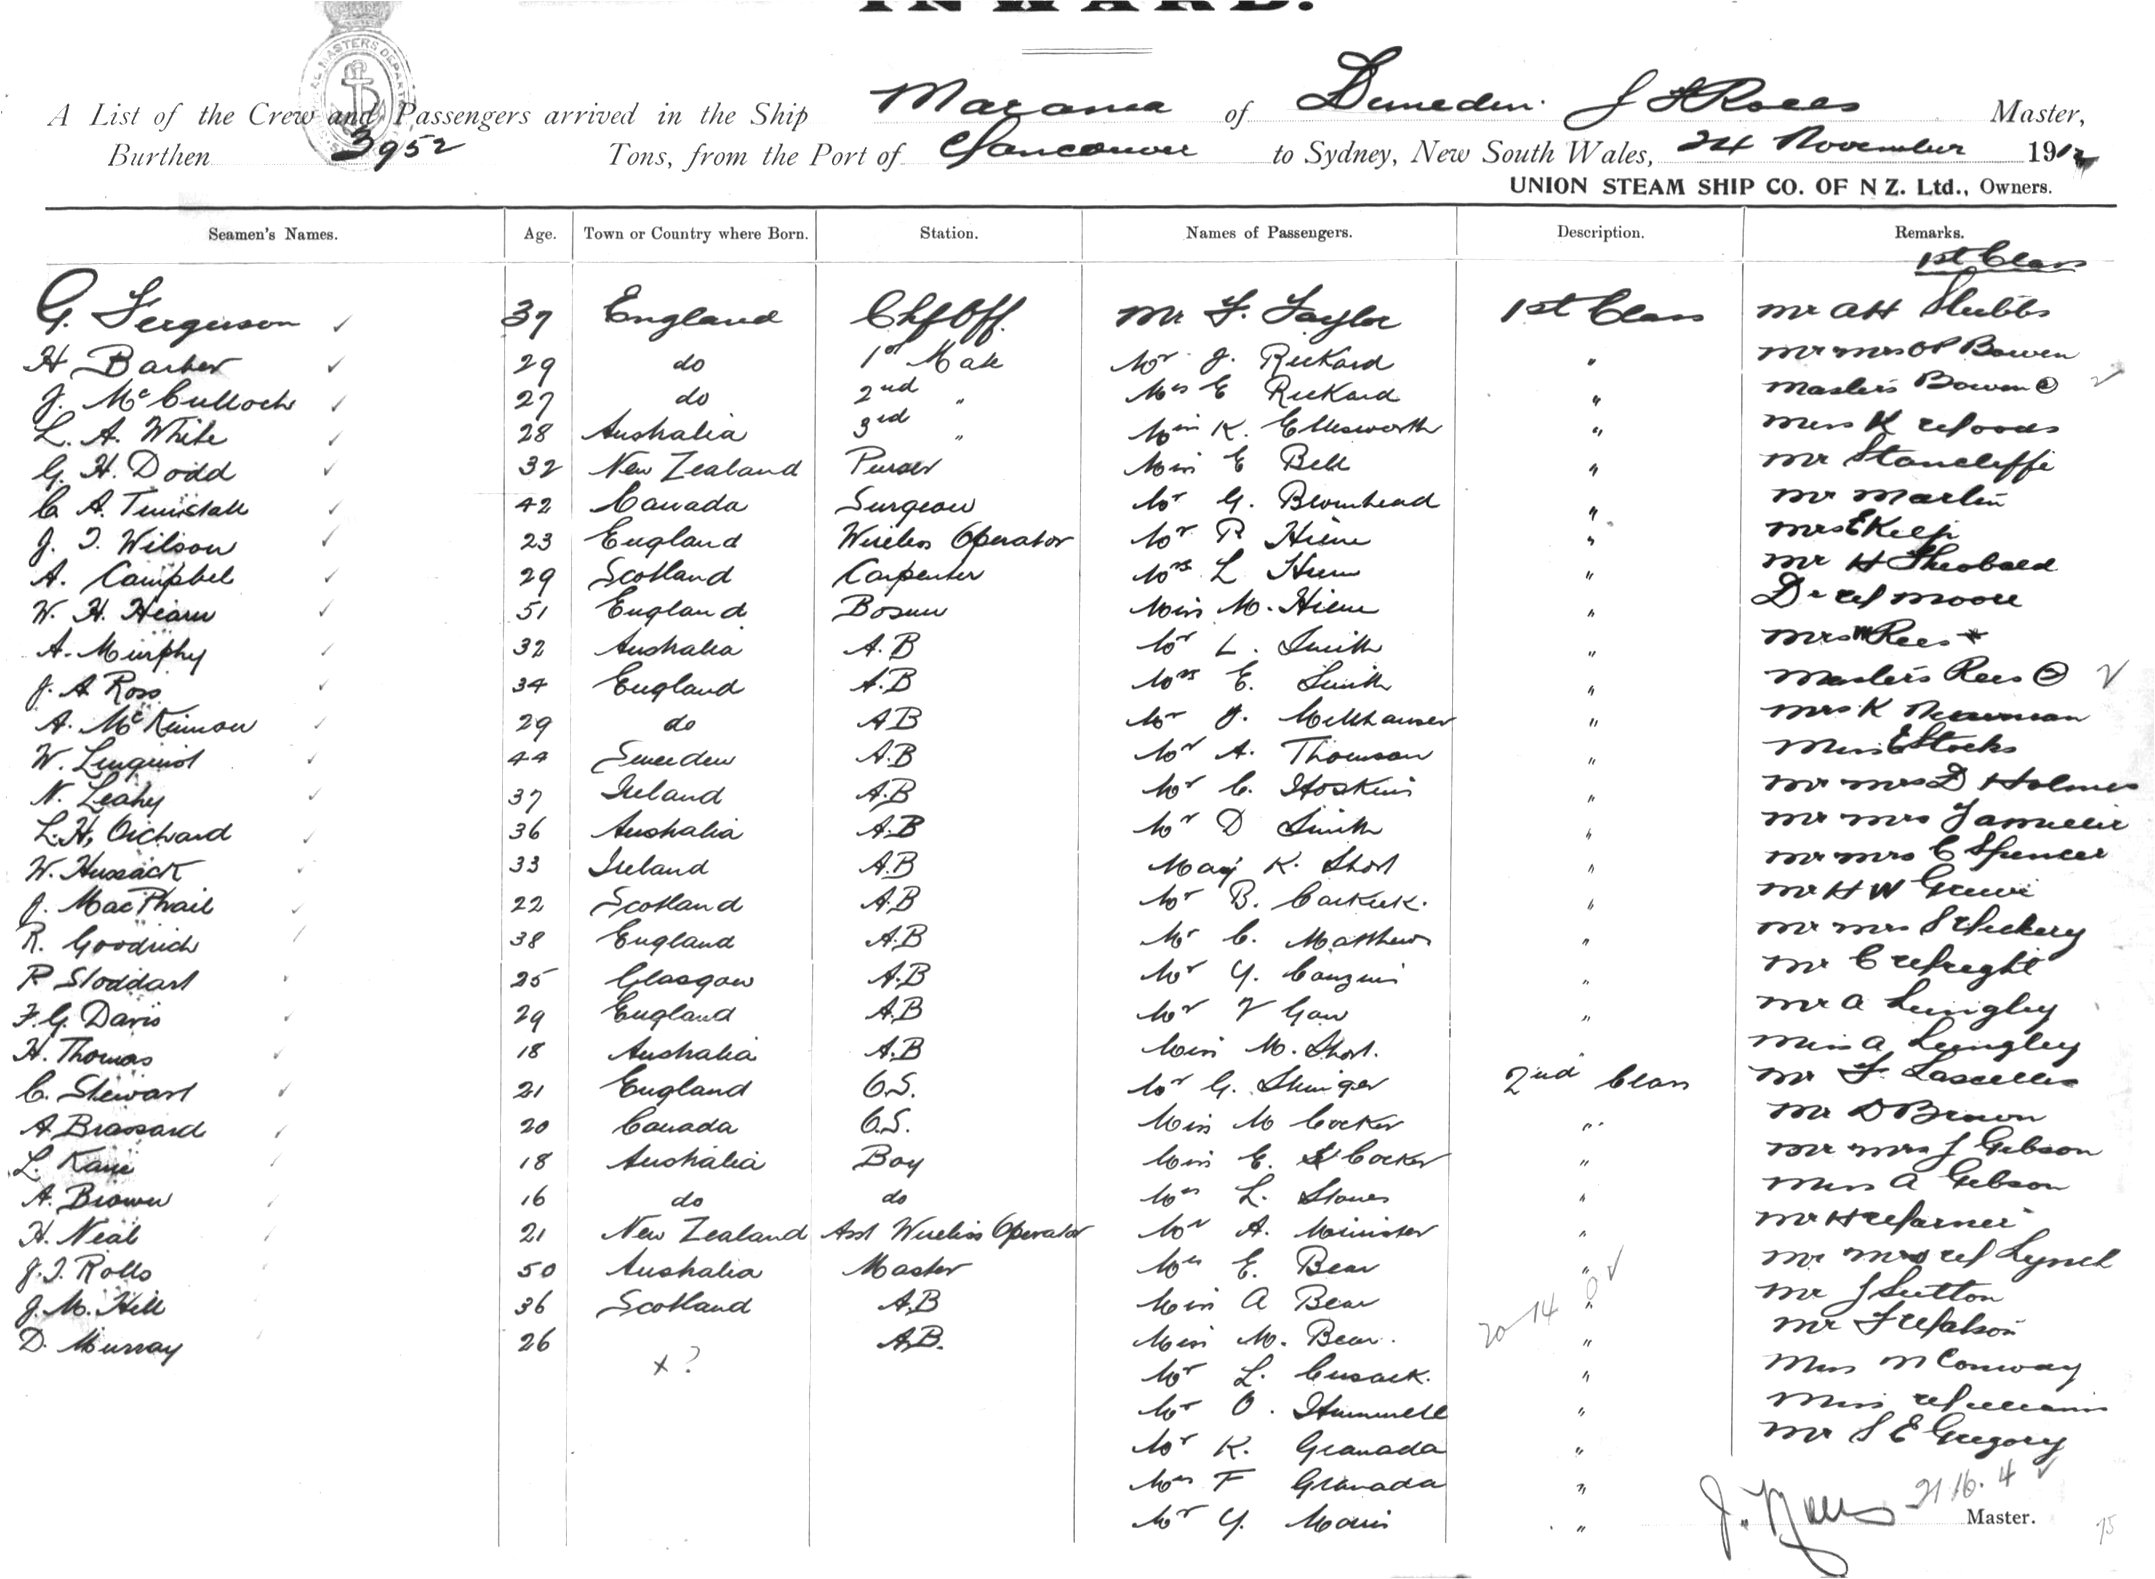 INWARD.
A List of the Crew and Passengers arrived in the Ship Marama of Dunedin. J Rolls Master,
Burthen 3952 Tons, from the Port of Vancouver to Sydney, New South Wales, 24 November 1912
UNION STEAM SHIP CO. OF N Z. Ltd., Owners.
Seamen's Names. Age. Town or Country where Born. Station. Names of Passengers. Description. Remarks.
1st Class
G. Ferguson 37 England Chf Off. Mr F. Taylor 1st Class Mr A H Stubbs
H Barber 29 do 1st Mate Mr J. Rickard " Mr Mrs O P Bowen
J. McCulloch 27 do 2nd " Mrs E Rickard " Masters Bowen 2
L. A. White 28 Australia 3rd " Miss K. Ellesworth " Miss K Woods
G. H. Dodd 32 New Zealand Purser Miss E Bell " Mr Stancliffe
C A. Tunstall 42 Canada Surgeon Mr G. Blomhead " Mr Martin
J. T. Wilson 23 England Wireless Operator Mr R " Mrs E
A. Campbel 29 Scotland Carpenter Mrs L " Mr H Theobald
W. H. Hearn 51 England Bosun Miss M. " Dr W Moore
A. Murphy 32 Australia A.B Mr L. Smith " Mrs Rees
J. A Ross 34 England A.B Mrs E. Smith " Masters Rees 2
A. McKinnon 29 do A B Mr J. " Mrs K Newman
W. Linquist 44 Sweden A.B Mr A. Thomson " Miss E Stocks
N. Leahy 37 Ireland A.B Mr C. Hoskins " Mr Mrs D Holmes
L. H. Orchard 36 Australia A.B Mr D Smith " Mr Mrs
W. Hussack 33 Ireland A.B K. Short " Mr Mrs C Spencer
J. MacPhail 22 Scotland A.B Mr B. " Mr H W
R. Goodrich 38 England A.B Mr C. Matthews " Mr Mrs S Vickery
R Stoddart 25 Glasgow A.B Mr Y. " Mr C Wright
F. G. Davis 29 England A.B Mr Gow " Mr A Langley
H. Thomas 18 Australia A.B Miss M. Short. " Miss A Langley
C. Stewart 21 England O.S. Mr G. Stringer 2nd Class Mr F. Lascelles
A Brassard 20 Canada O.S. Miss M Cocker " Mr D Brown
L. Kaye 18 Australia Boy Miss E. Cocker " Mr Mrs J Gibson
A. Brown 16 do do Mrs L. Stones " Miss A Gibson
H. Neal 21 New Zealand Asst Wireless Operator Mr A. Minister " Mr H Warner
J. T. Rolls 50 Australia Master Mrs E. Bear " Mr Mrs W Lynch
J. M. Hill 36 Scotland A.B Miss A Bear " Mr J Sutton
D. Murray 26 A.B. Miss M. Bear. " Mr F Watson
x ? Mr L. Cusack. " Miss M Conway
20 14 0
Mr O. Hummell " Miss Williams
Mr K. Granada " Mr S E Gregory
Mrs F Granada "
Mr Y. Morris "
21 16. 4
J. Rolls Master.
75